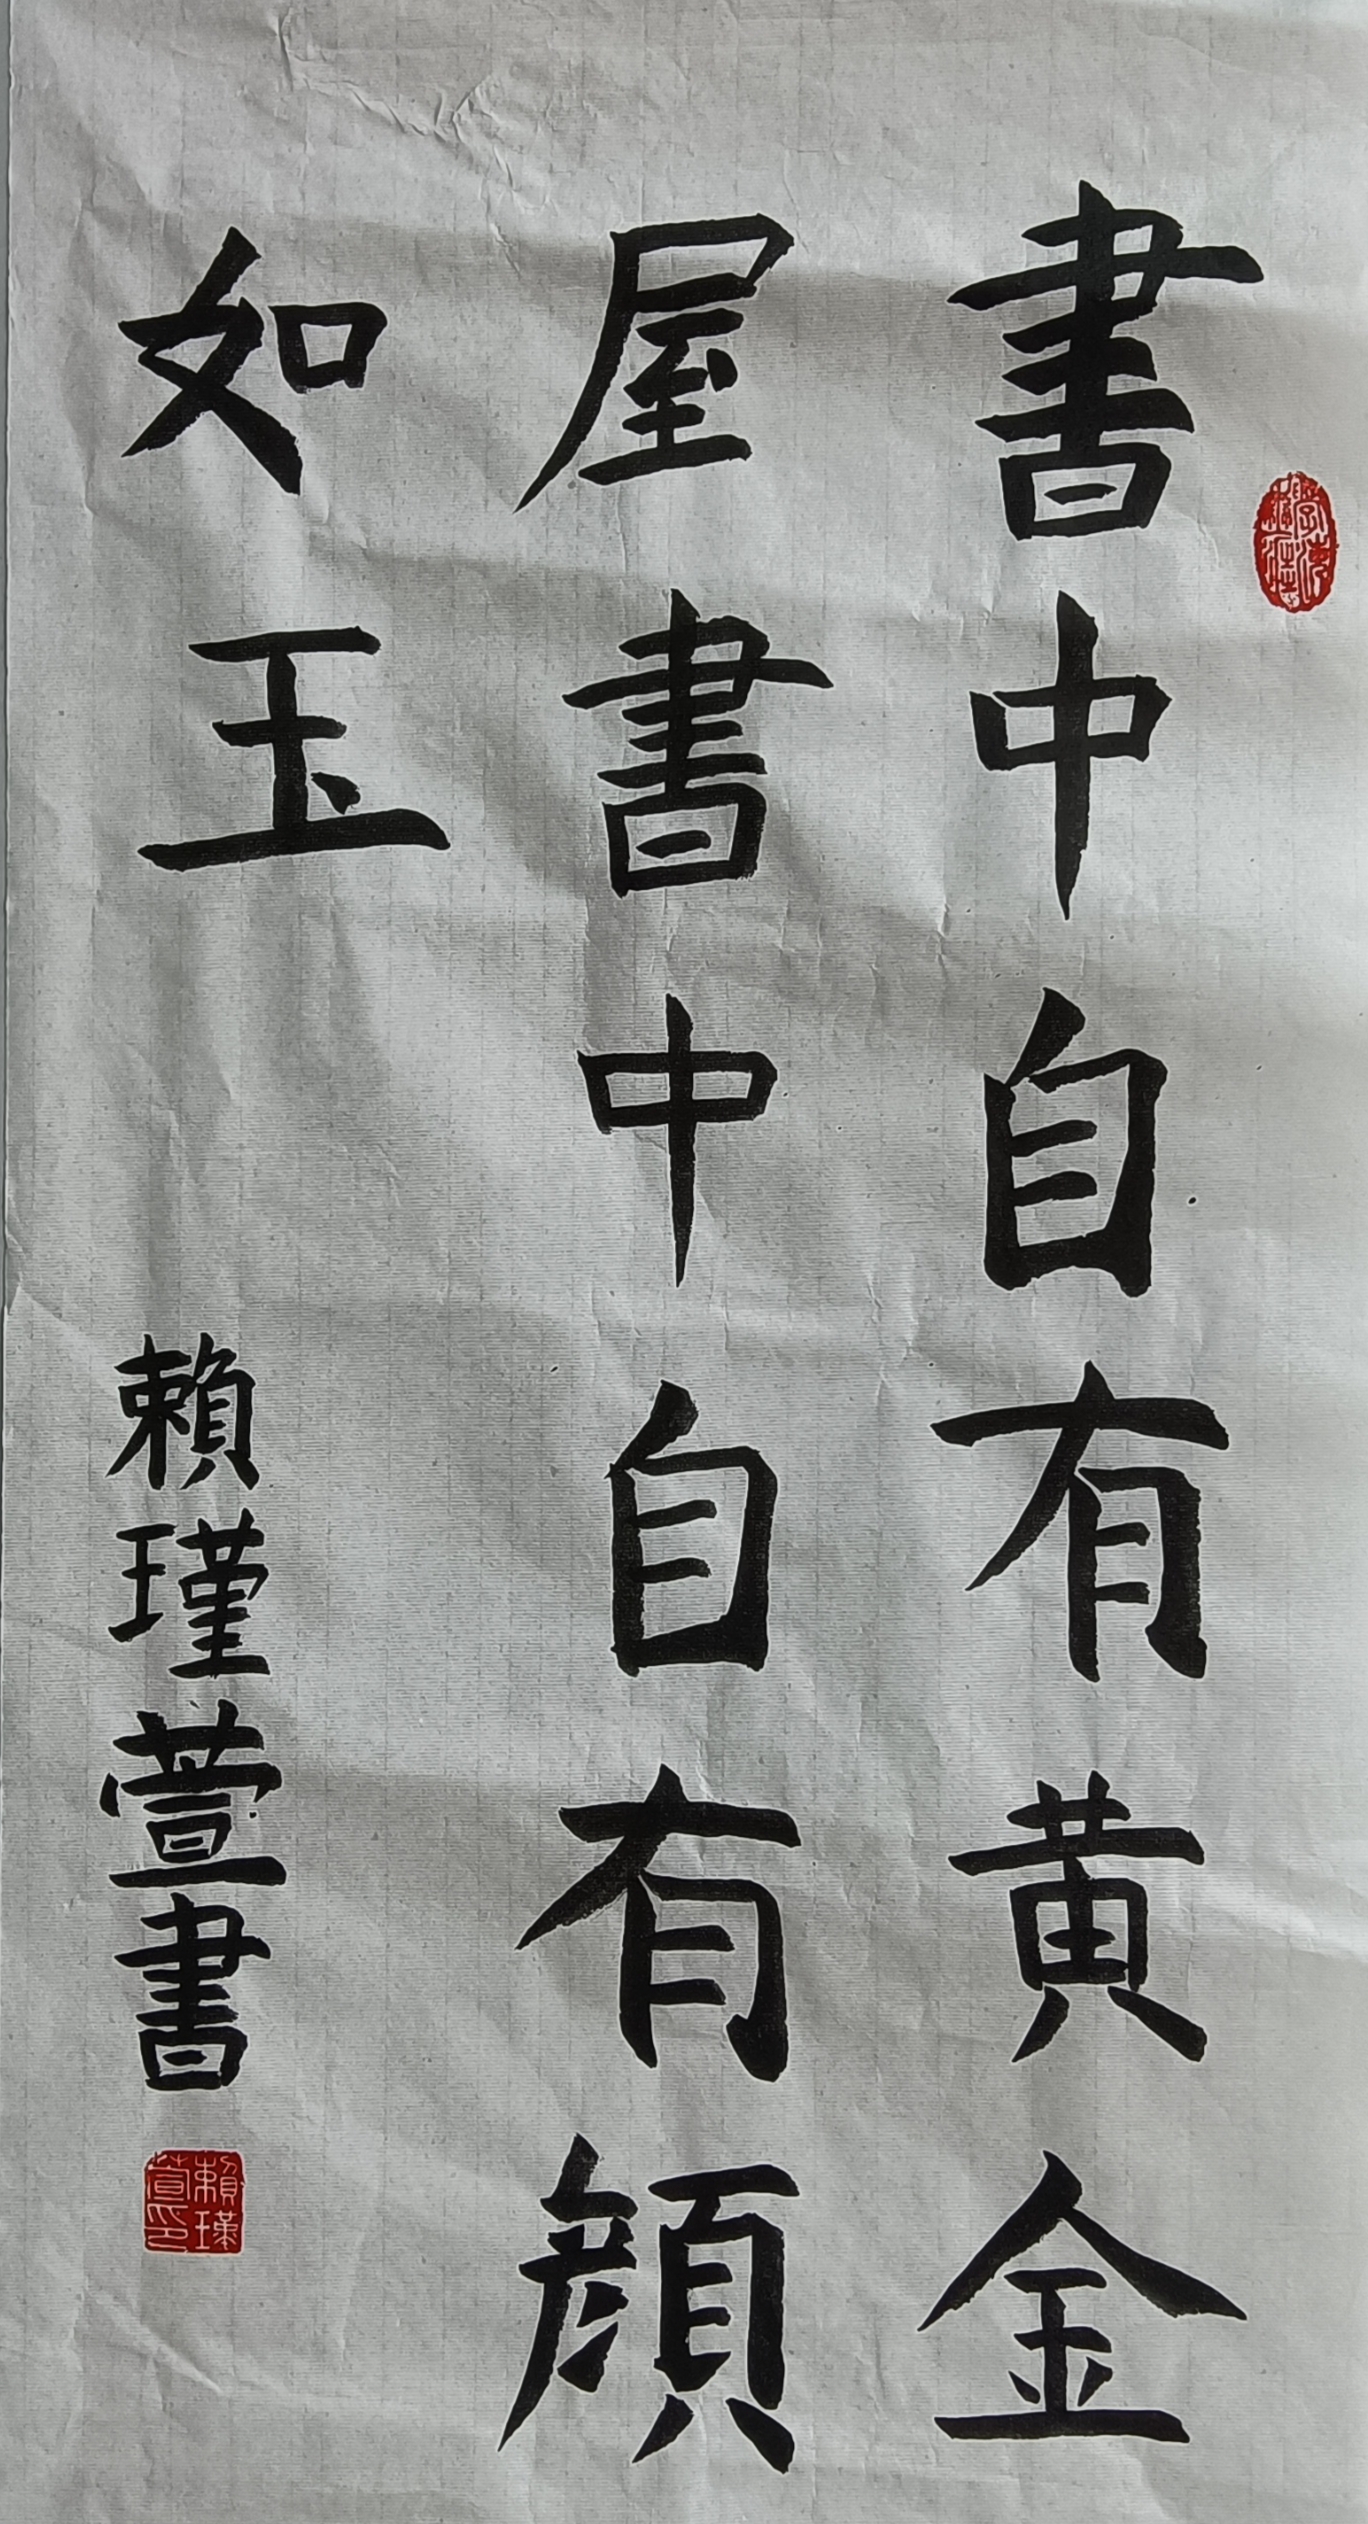 書中自有黄金
屋書中自有顔
如玉
賴瑾萱書
賴瑾
萱印